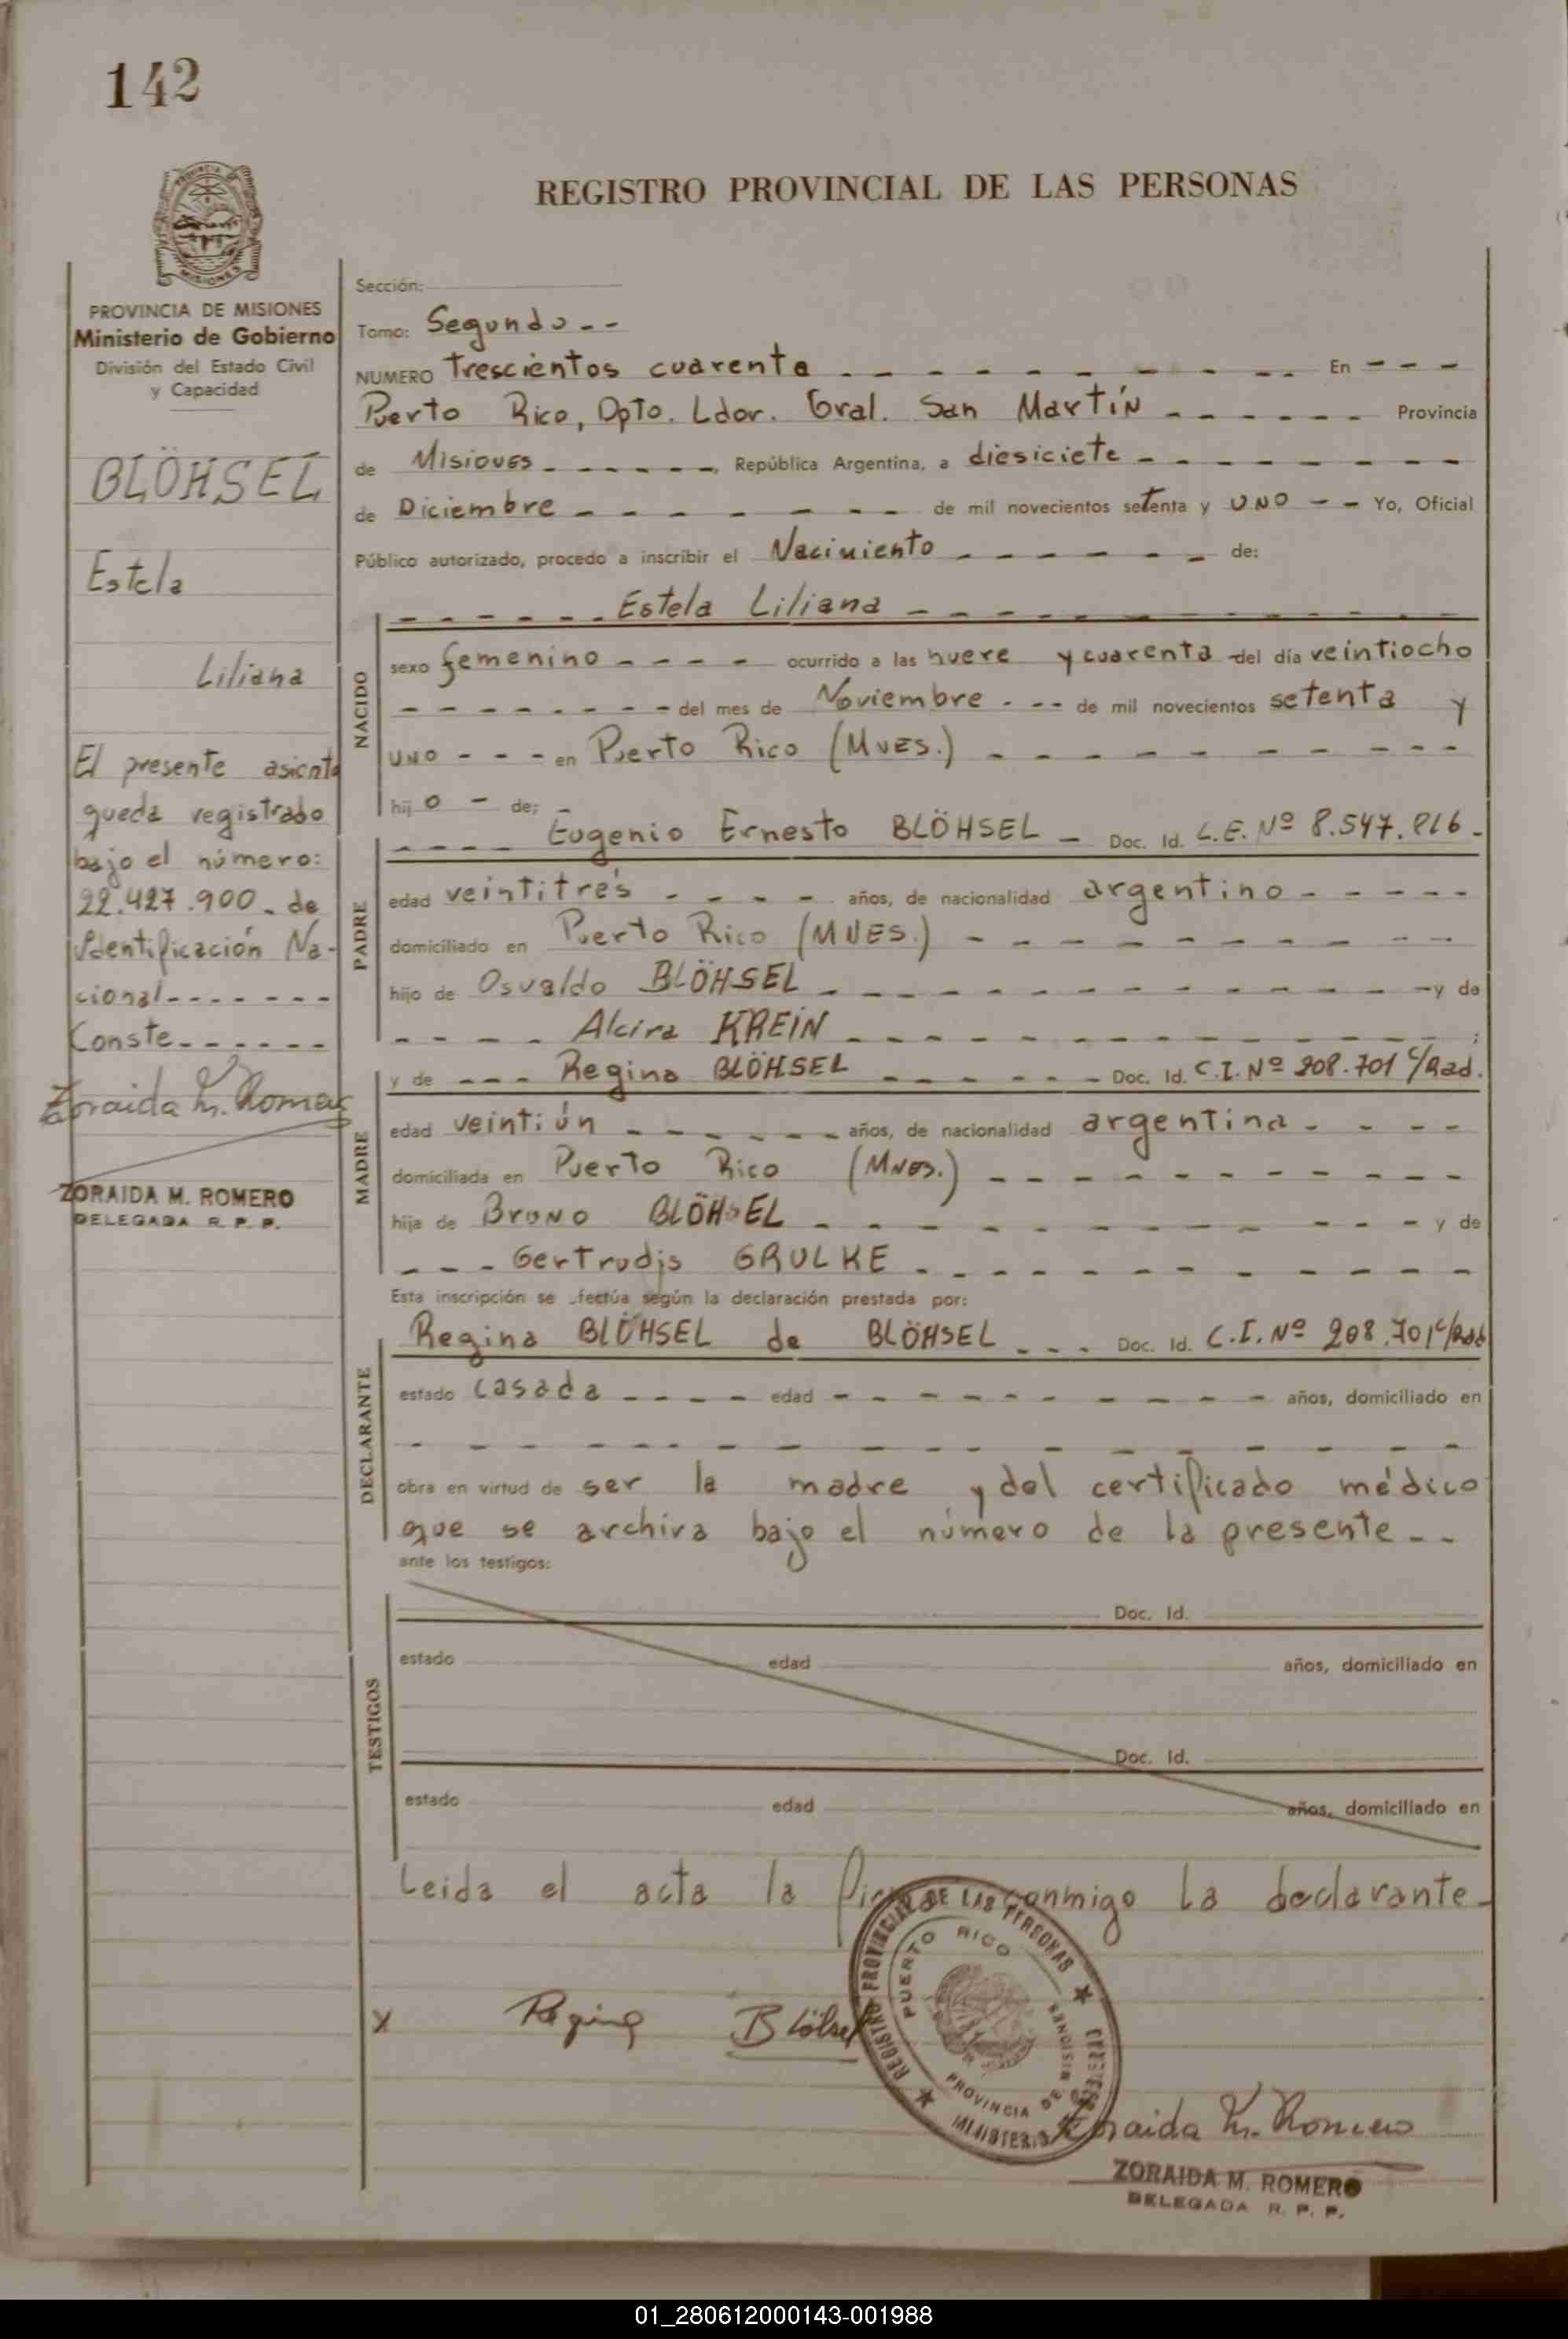 142
REGISTRO PROVINCIAL DE LAS PERSONAS
PROVINCIA DE MISIONES
Ministerio de Gobierno
División del Estado Civil
y Capacidad
BLÖHSEL
Estela
Liliana
El presente asiento
queda registrado
bajo el número:
22.427.900 - de
Identificación Na-
cional-------
Conste------
Zoraida M. Romero
ZORAIDA M. ROMERO
DELEGADA R. P. P.
Sección:
Tomo: Segundo--
NUMERO Trescientos cuarenta - - - - - - - - - - En - - -
Puerto Rico, Dpto. Ldor. Gral. San Martín - - - - - - Provincia
de Misiones - - - - - -, República Argentina, a diesiciete - - - - - - - -
de Diciembre - - - - - - - - de mil novecientos setenta y UNO - - Yo, Oficial
Público autorizado, procedo a inscribir el Nacimiento - - - - - - de:
- - - - - - Estela Liliana - - - - - - - - - - - -
NACIDO
sexo femenino - - - - ocurrido a las nueve y cuarenta del día veintiocho
- - - - - - - - del mes de Noviembre - - - de mil novecientos setenta y
UNO - - - en Puerto Rico (MNES.) - - - - - - - - - -
hijo - de: -
PADRE
- - - - Eugenio Ernesto BLÖHSEL - Doc. Id. L.E. Nº 8.547.816 -
edad veintitrés - - - - años, de nacionalidad argentino - - - - -
domiciliado en Puerto Rico (MNES.) - - - - - - - - - -
hijo de Osvaldo BLÖHSEL - - - - - - - - - - - - - y de
- - - - Alcira KREIN - - - - - - - - - - - - ;
MADRE
y de --- Regina BLÖHSEL - - - - - - Doc. Id. C.I. Nº 208.701 C/Rad.
edad veintiún - - - - - - años, de nacionalidad argentina - - - -
domiciliada en Puerto Rico (MNES.) - - - - - - - - - -
hija de Bruno BLÖHSEL - - - - - - - - - - - - y de
- - - Gertrudis GRULKE - - - - - - - - - - - -
Esta inscripción se efectúa según la declaración prestada por:
DECLARANTE
Regina BLÖHSEL de BLÖHSEL - - - Doc. Id. C.I. Nº 208.701 C/Rad
estado casada - - - - edad - - - - - - - - - - años, domiciliado en
- - - - - - - - - - - - - - - - - -
obra en virtud de ser la madre y del certificado médico
que se archiva bajo el número de la presente--
ante los testigos:
TESTIGOS
Doc. Id.
estado edad años, domiciliado en
Doc. Id.
estado edad años, domiciliado en
Leida el acta la conmigo la declarante-
x Regina Blöhsel
REGISTRO PROVINCIAL DE LAS PERSONAS
PUERTO RICO
PROVINCIA DE MISIONES
MINISTERIO DE GOBIERNO
Zoraida M. Romero
ZORAIDA M. ROMERO
DELEGADA R. P. P.
01_280612000143-001988